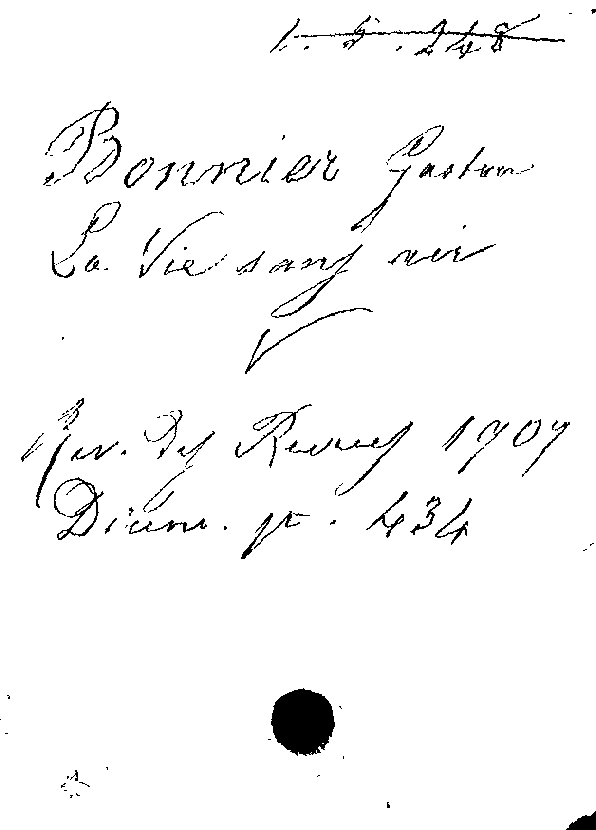 1. 5. 248
Bonnier Gaston
La Vie sans air
Rev. des Revues 1907
Décem. p. 434